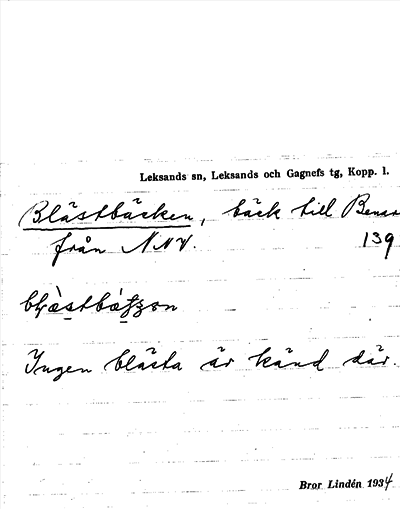 Leksands sn, Leksands och Gagnefs tg, Kopp. l.
Blästbäcken, bäck till Bensa
från NNV. 139
Ingen blästa är känd där.
Bror Lindén 1934